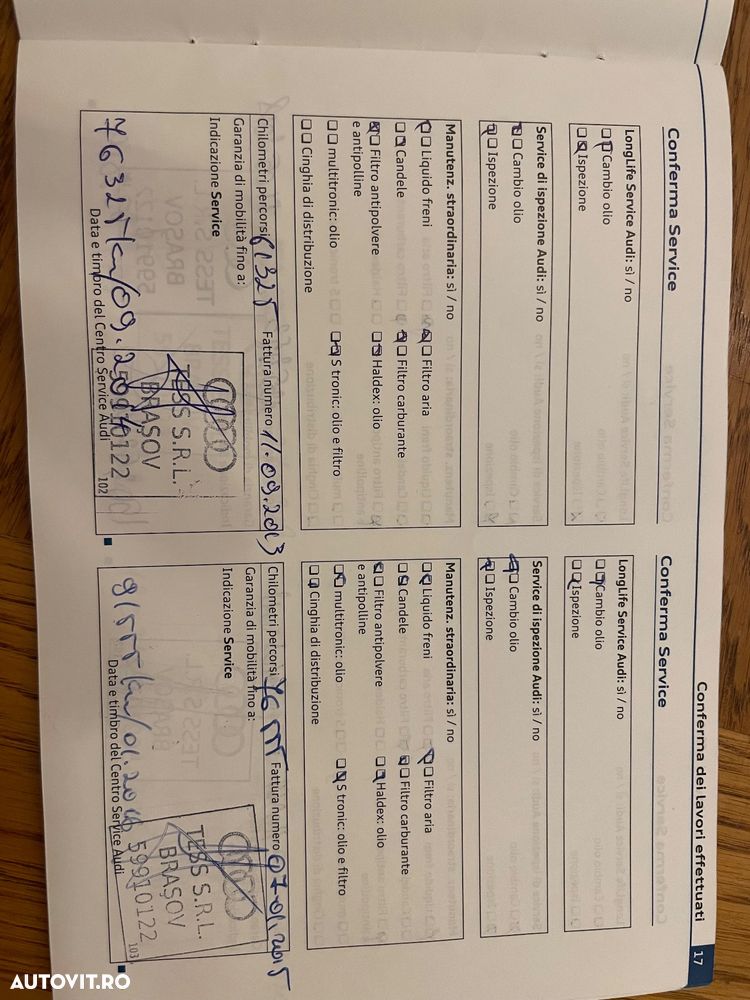 Conferma dei lavori effettuati 17
Conferma Service
LongLife Service Audi: sì / no
Cambio olio
Ispezione
Service di ispezione Audi: sì / no
Cambio olio
Ispezione
Manutenz. straordinaria: sì / no
Liquido freni Filtro aria
Candele Filtro carburante
Filtro antipolvere Haldex: olio
e antipolline
multitronic: olio S tronic: olio e filtro
Cinghia di distribuzione
Chilometri percorsi 61325 Fattura numero 11.09.2013
Garanzia di mobilità fino a:
Indicazione Service
TESS S.R.L.
BRAȘOV
59910122
76325 km/09.
Data e timbro del Centro Service Audi
102
Conferma Service
LongLife Service Audi: sì / no
Cambio olio
Ispezione
Service di ispezione Audi: sì / no
Cambio olio
Ispezione
Manutenz. straordinaria: sì / no
Liquido freni Filtro aria
Candele Filtro carburante
Filtro antipolvere Haldex: olio
e antipolline
multitronic: olio S tronic: olio e filtro
Cinghia di distribuzione
Chilometri percorsi 76555 Fattura numero 07.01.2015
Garanzia di mobilità fino a:
Indicazione Service
TESS S.R.L.
BRAȘOV
59910122
91555 km/01.2016
Data e timbro del Centro Service Audi
103
AUTOVIT.RO